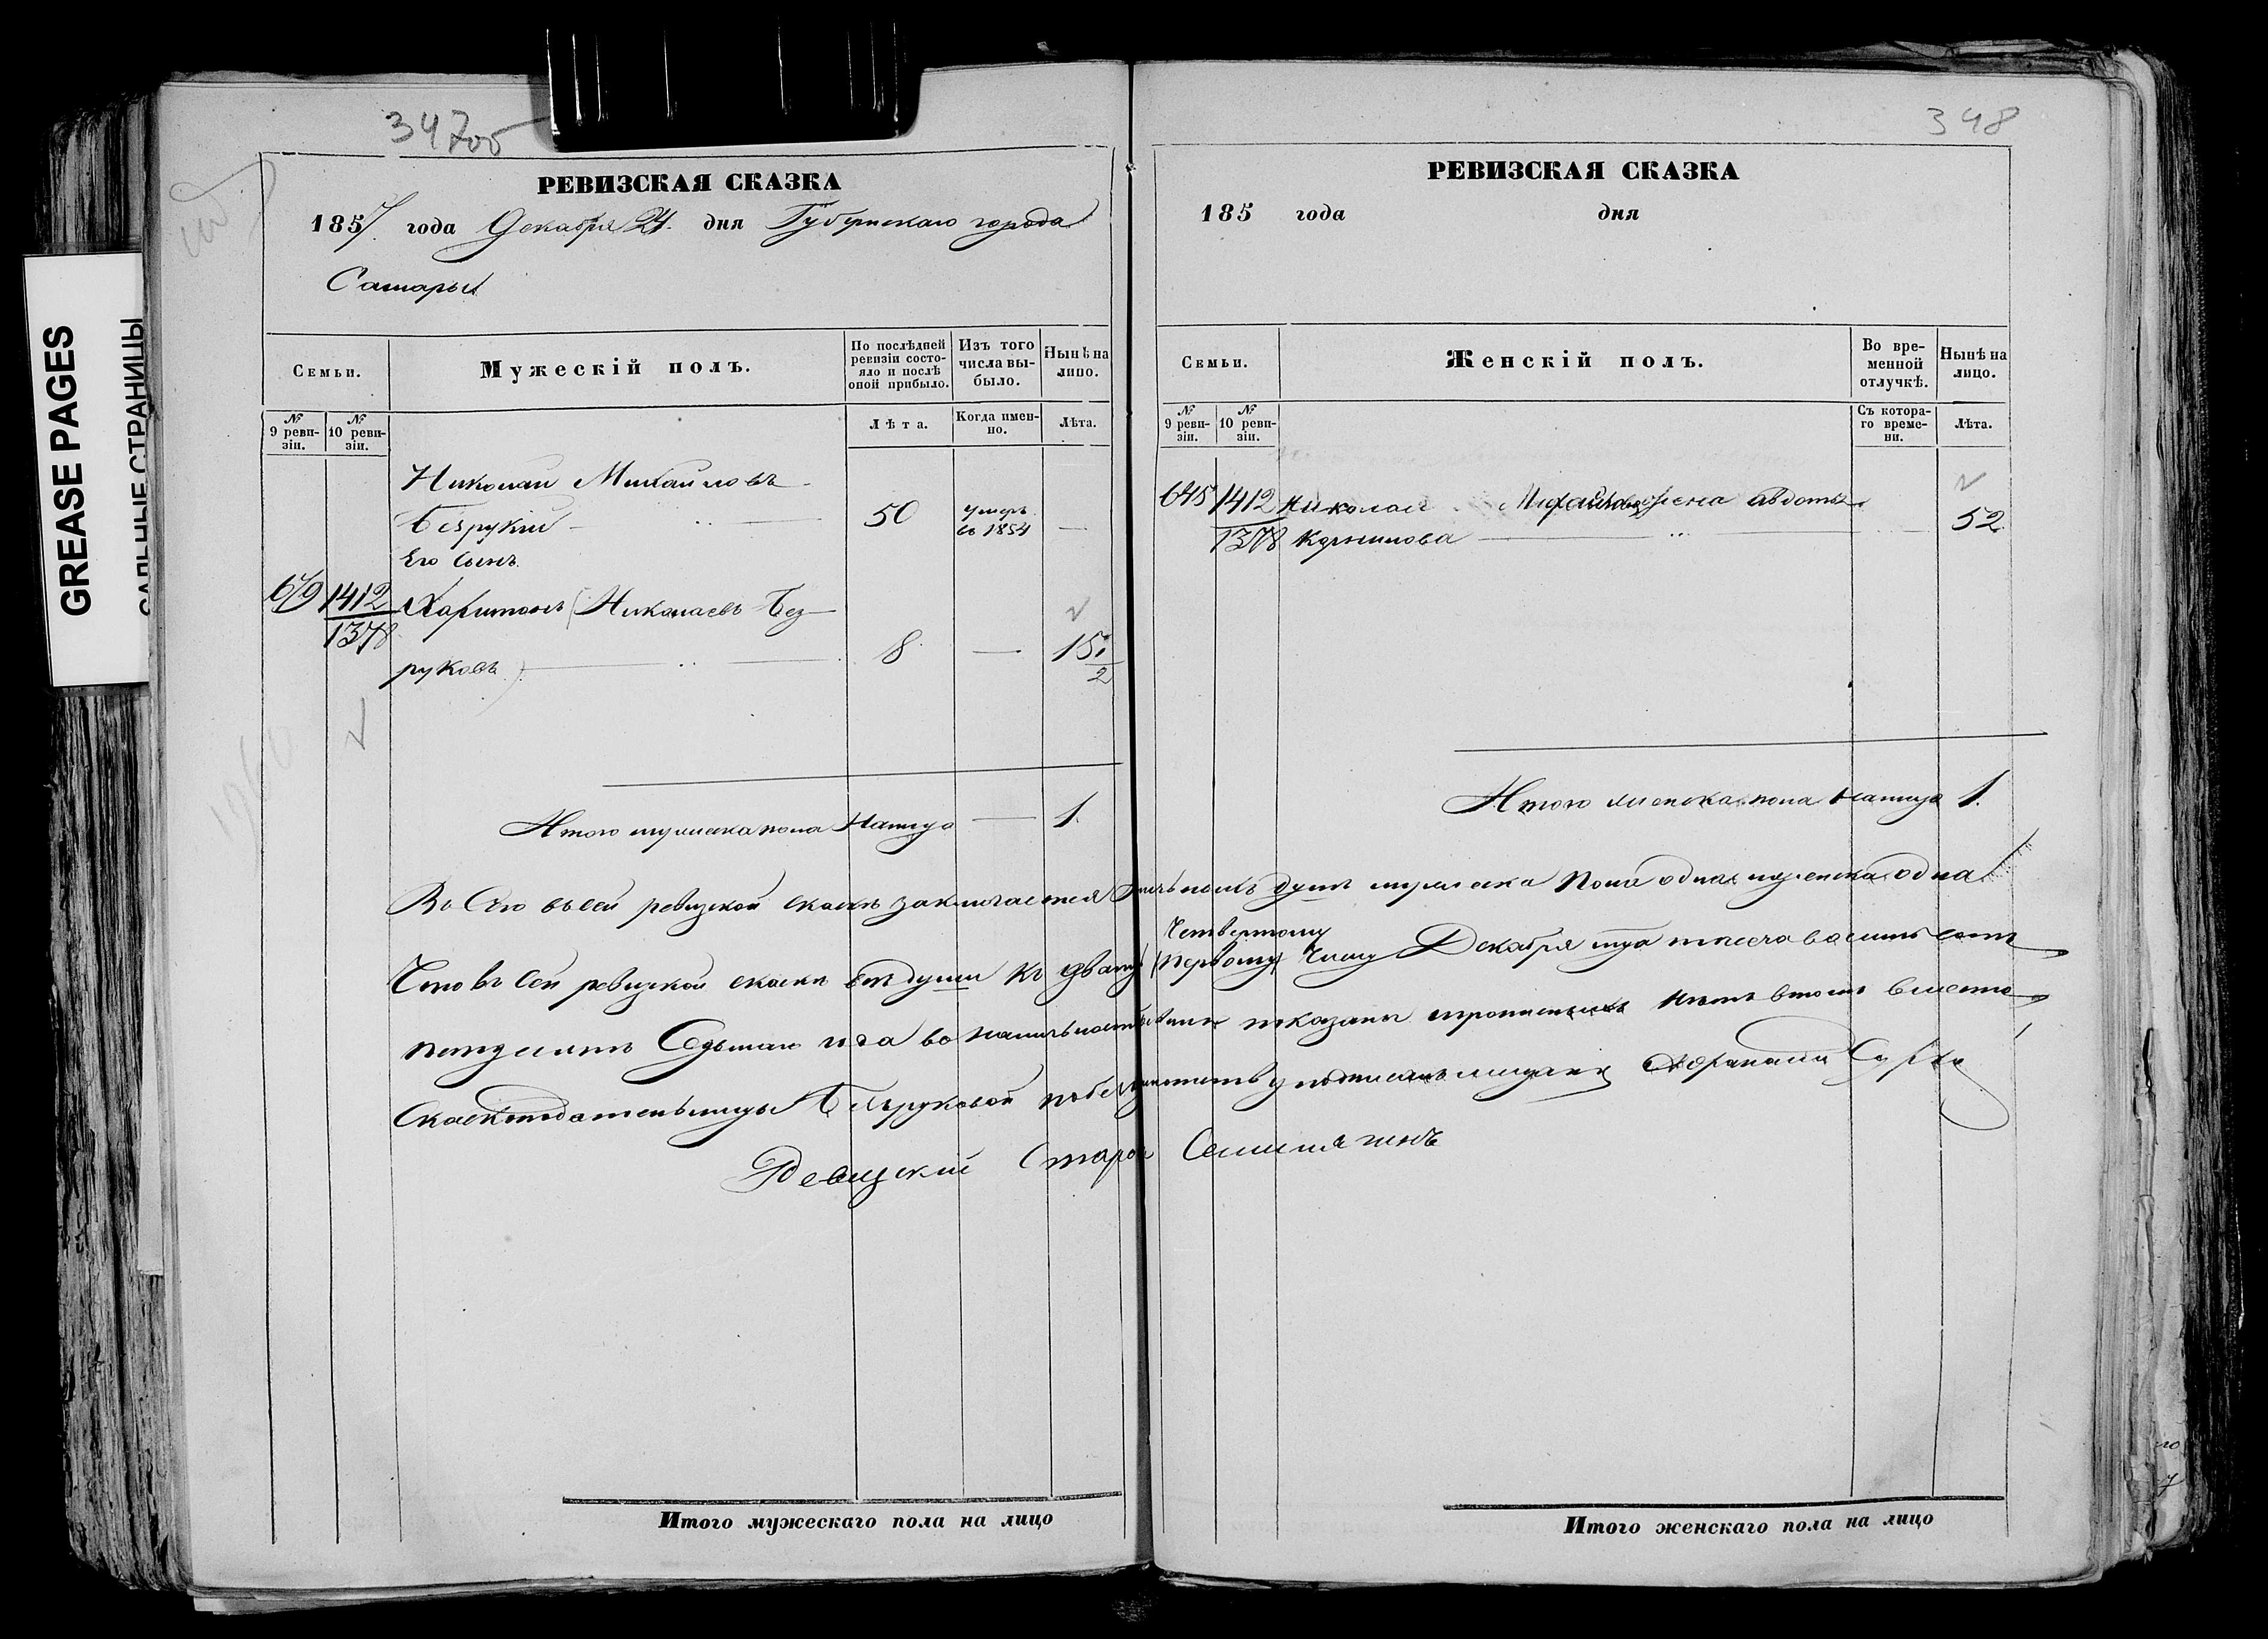 GREASE PAGES
САЛЬНЫЕ СТРАНИЦЫ
347об
РЕВИЗСКАЯ СКАЗКА
1857. года Декабря 24. дня Губернскаго города
Самары
Семьи.
Мужескій полъ.
По послѣдней ревизіи состояло и послѣ оной прибыло.
Изъ того числа выбыло.
Нынѣ на лицо.
№ 9 ревизіи.
№ 10 ревизіи.
Лѣта.
Когда именно.
Лѣта.
Николай Михайловъ
Безрукій 50 умеръ въ 1854 —
Его сынъ
1412 Харитонъ (Николаевъ Без-
1378
руковъ) 8 — 15 1/2
Итого мужеска пола налицо — 1.
348
РЕВИЗСКАЯ СКАЗКА
185 года дня
Семьи.
Женскій полъ.
Во временной отлучкѣ.
Нынѣ на лицо.
№ 9 ревизіи.
№ 10 ревизіи.
Съ котораго времени.
Лѣта.
645 1412 Николая Михайлова жена Авдотья
1378 Корнилова — 52
Итого женска пола налицо 1.
Всего въ сей ревизкой сказкѣ заключается душъ мужеска пола одна женска одна
Четвертому
Что въ сей ревизкой сказкѣ всѣ души къ двадц (первому) числу Декабря тысяча восемьсотъ
пятдесятъ Седьмаго года въ наличности показаны прописныхъ нѣтъ въ томъ вместо
Сказкоподательницы Безруковой по безграмотству подписалъ мещан
Ревизский Староста
Итого мужескаго пола на лицо
Итого женскаго пола на лицо